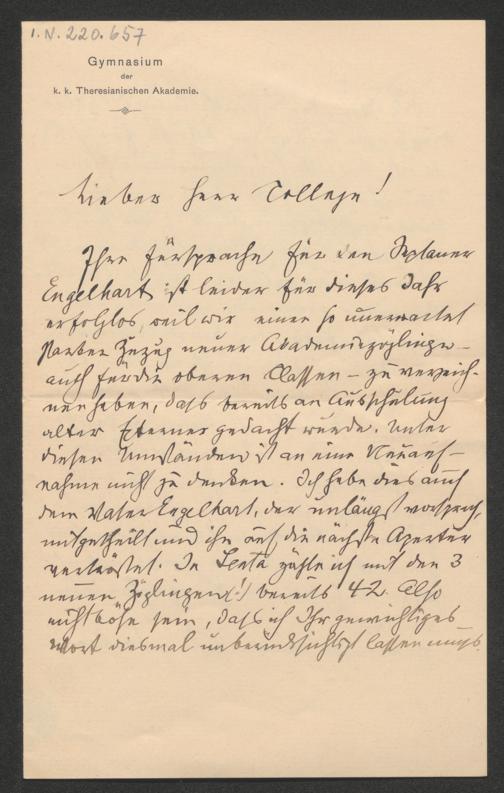 I. N. 220.657
Gymnasium
der
k. k. Theresianischen Akademie.
Lieber Herr College!
Ihre Fürsprache für den
Engelhart ist leider für dieses Jahr
erfolglos, weil wir einen so unerwartet
starken Zuzug neuer Akademiezöglinge –
auch für die oberen Classen – zu verzeich-
nen haben, dass bereits an Ausschulung
alter Externer gedacht wurde. Unter
diesen Umständen ist an eine Neuauf-
nahme nicht zu denken. Ich habe dies auch
dem Vater Engelhart, der unlängst vorsprach,
mitgetheilt und ihn auf die nächste Apertur
vertröstet. In Sexta zähle ich mit den 3
neuen Zöglingen (!) bereits 42. Also
nicht böse sein, dass ich Ihr gewichtiges
Wort diesmal unberücksichtigt lassen muss.